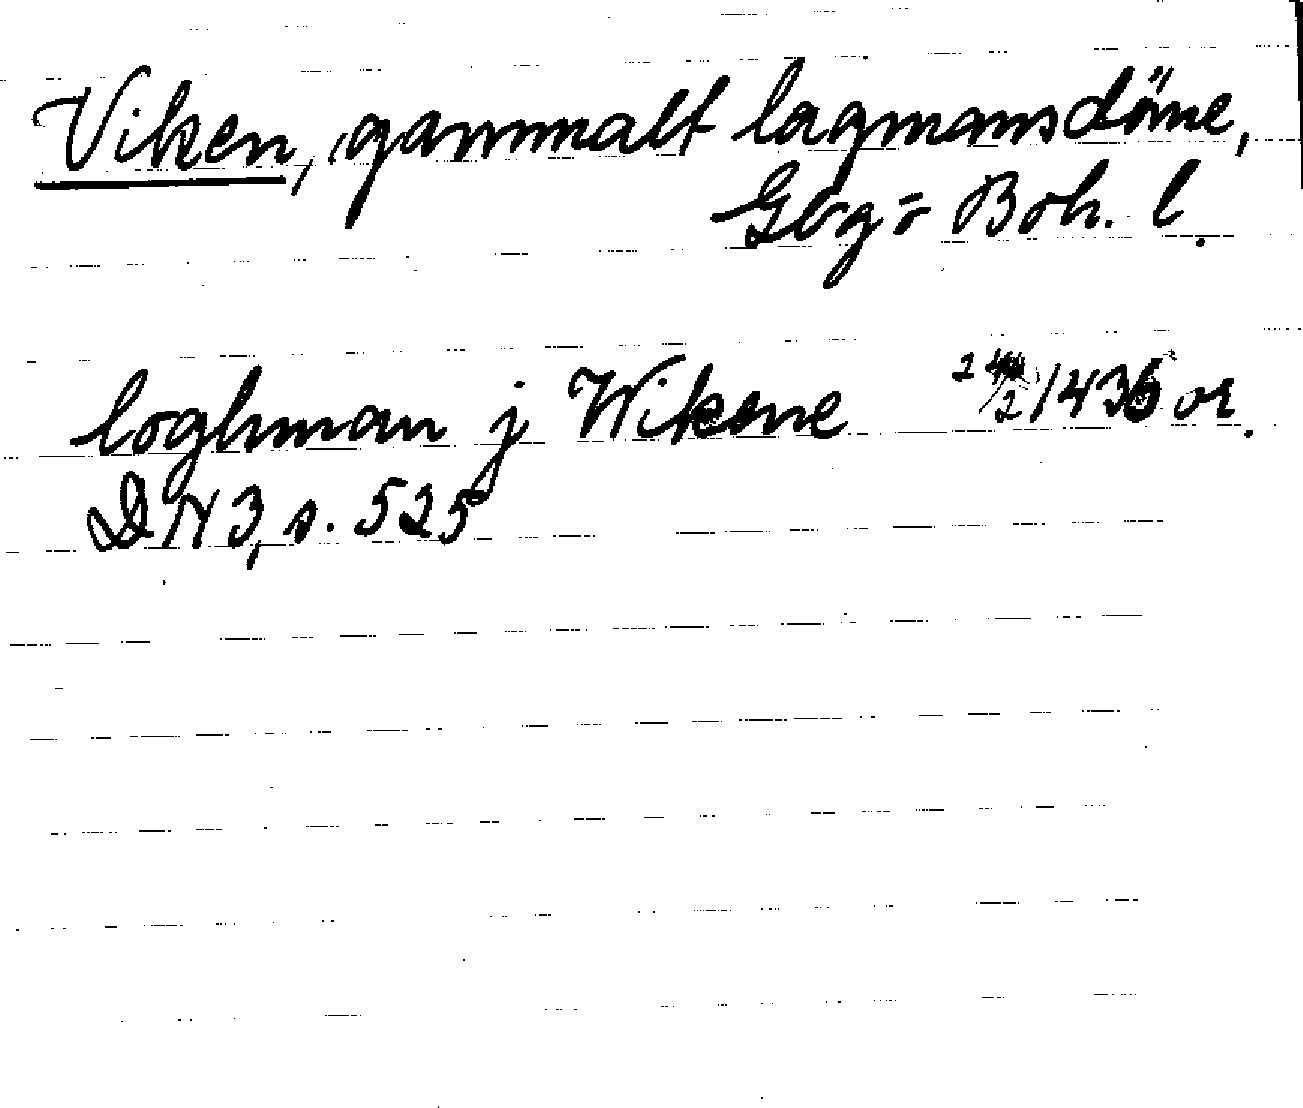 Viken, gammalt lagmansdöme,
Gbg o Boh. l.
loghman j Wikene 2/2 1436 or.
DN 3, s. 525